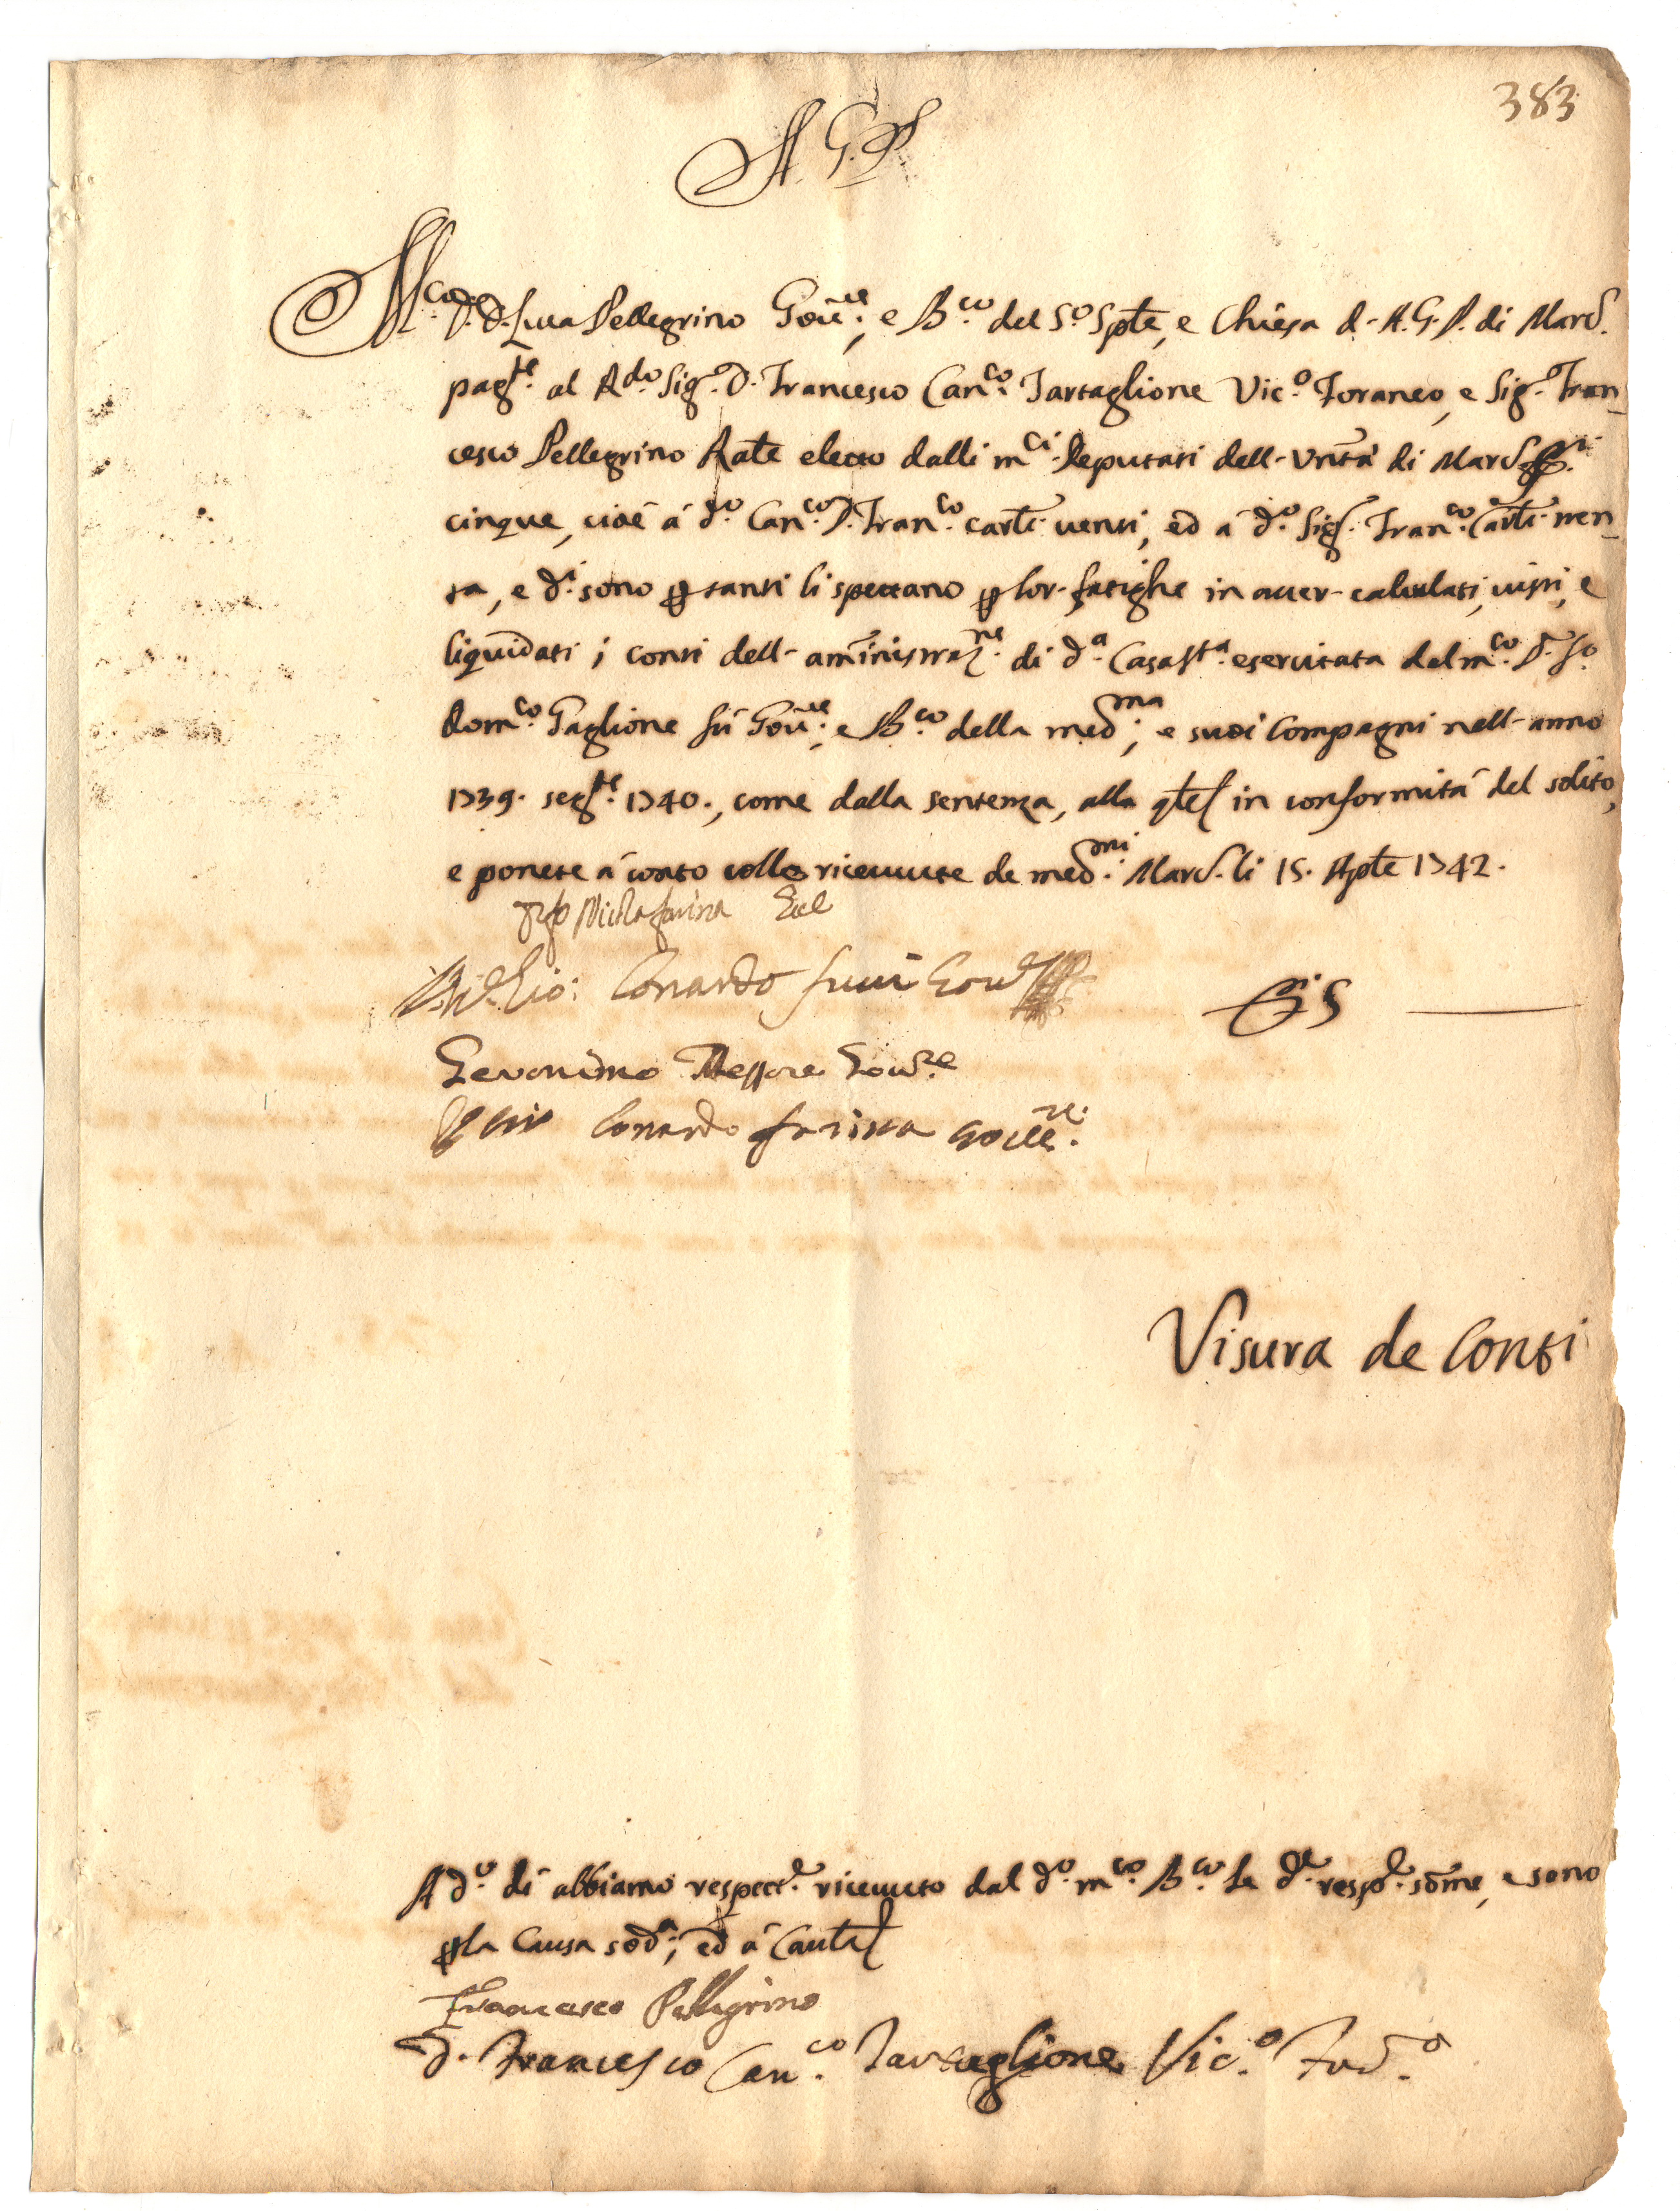 383
A. G. P.
M.co D. D. Luca Pellegrino Gov.re, e B.co del S.o Spte, e Chiesa d- A. G. P. di Marc.
pag.te al R.do Sig.r D. Francesco Can.co Tartaglione Vic.o Foraneo, e Sig.r Fran_
cesco Pellegrino Rate eletto dalli m.ci Deputati dell- Untà di Marc.
cinque, cioè á d.o Can.co D. Fran.co carti venti, ed á d.o Sig.r Fran.co Carti tren_
ta, e d.i sono p tanti li spettano p lor- fatighe in aver- calculati, visti, e
liquidati i conti dell- amministraz.ne di d.a Casa St.a esercitata dal m.co D. Gio:
Dom.co Taglione fù Gov.re, e B.co della med.ma, e suoi Compagni nell- anno
1739. seg.te 1740., come dalla sentenza, alla qle in conformitá del solito,
e ponete á conto colle ricevute de med.mi Marc. li 15. Aple 1742.
Nicola farina
Gio: Conardo
5
Geronimo Messore Gov.re
Conardo farina Gov.re
Visura de Conti
A d.o dí abbiamo respett.e ricevuto dal d.o m.co B.co le d.e resp.e some, e sono
p la Causa sod.a, ed á Caut.a
Francesco Pellegrino
D. Francesco Can.co Tartaglione Vic.o For.o